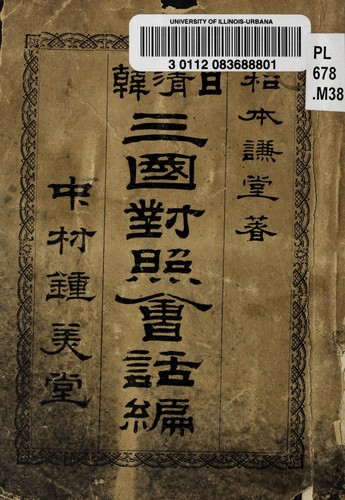 UNIVERSITY OF ILLINOIS-URBANA
3 0112 083688801
PL
678
.M38
松本謙堂著
日清韓
三國對照會話編
中村鍾美堂